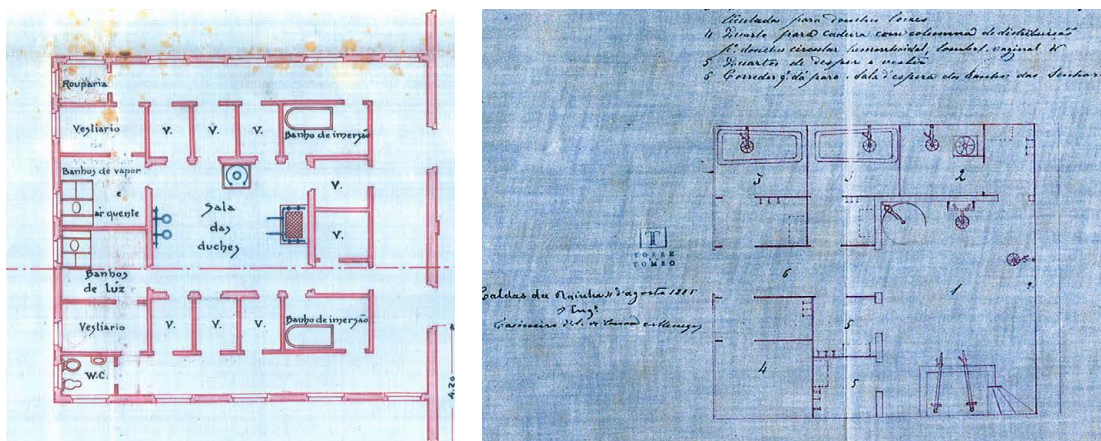 Rouparia
Vestiario
V.
V.
V.
Banho de imersão
Banhos de vapor
e
ar quente
V.
Sala
das
duches
V.
Banhos
de luz
Vestiario
V.
V.
V.
Banho de imersão
W.C.
4.20
para douches
4 Quarto para cadeira com columna de distribuição
pª douches circular hemorrhoidal, lombal, vaginal &
5 Quartos de despir e vestir
6 Corredor q. dá para sala d'espera dos banhos das Senhoras
3
3
2
TORRE
TOMBO
6
1
5
4
5
Caldas da Rainha d'agosto
O Engº